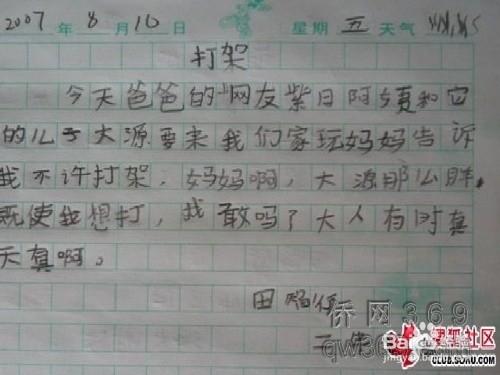 2007年8月10日 星期五 天气
打架
今天爸爸的网友紫日阿姨和它
的儿子大源要来我们家玩妈妈告诉
我不许打架。妈妈啊，大源那么胖，
既使我想打，我敢吗了大人有时真
天真啊。
田
侨网369
搜狐社区
CLUB.SOHU.COM